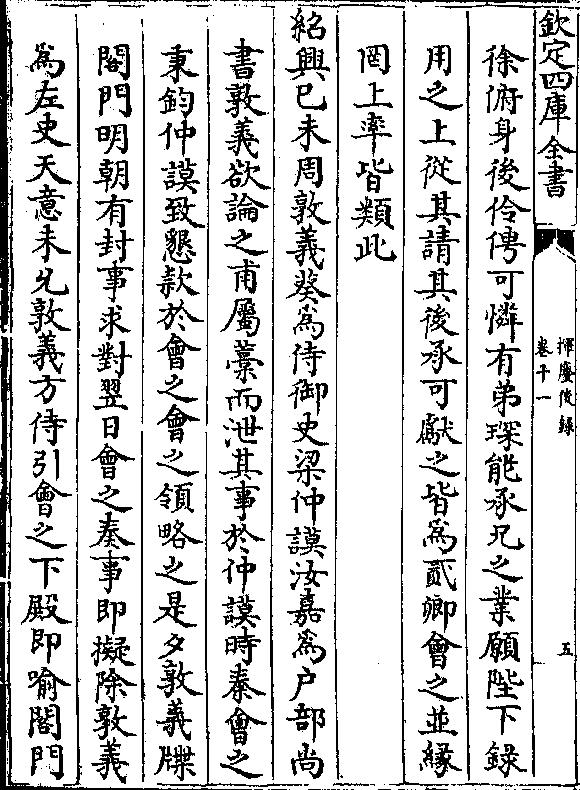 欽定四庫全書
揮麈後錄
卷十一
五
徐俯身後伶俜可憐有弟琛能承兄之業願陛下錄
用之上從其請其後承可獻之皆為貳卿會之並緣
罔上率皆類此
紹興己未周敦義葵為侍御史梁仲謨汝嘉為户部尚
書敦義欲論之甫屬藁而泄其事於仲謨時秦會之
秉鈞仲謨致懇款於會之會之領略之是夕敦義牒
閤門明朝有封事求對翌日會之奏事即擬除敦義
為左史天意未允敦義方侍引會之下殿即喻閤門